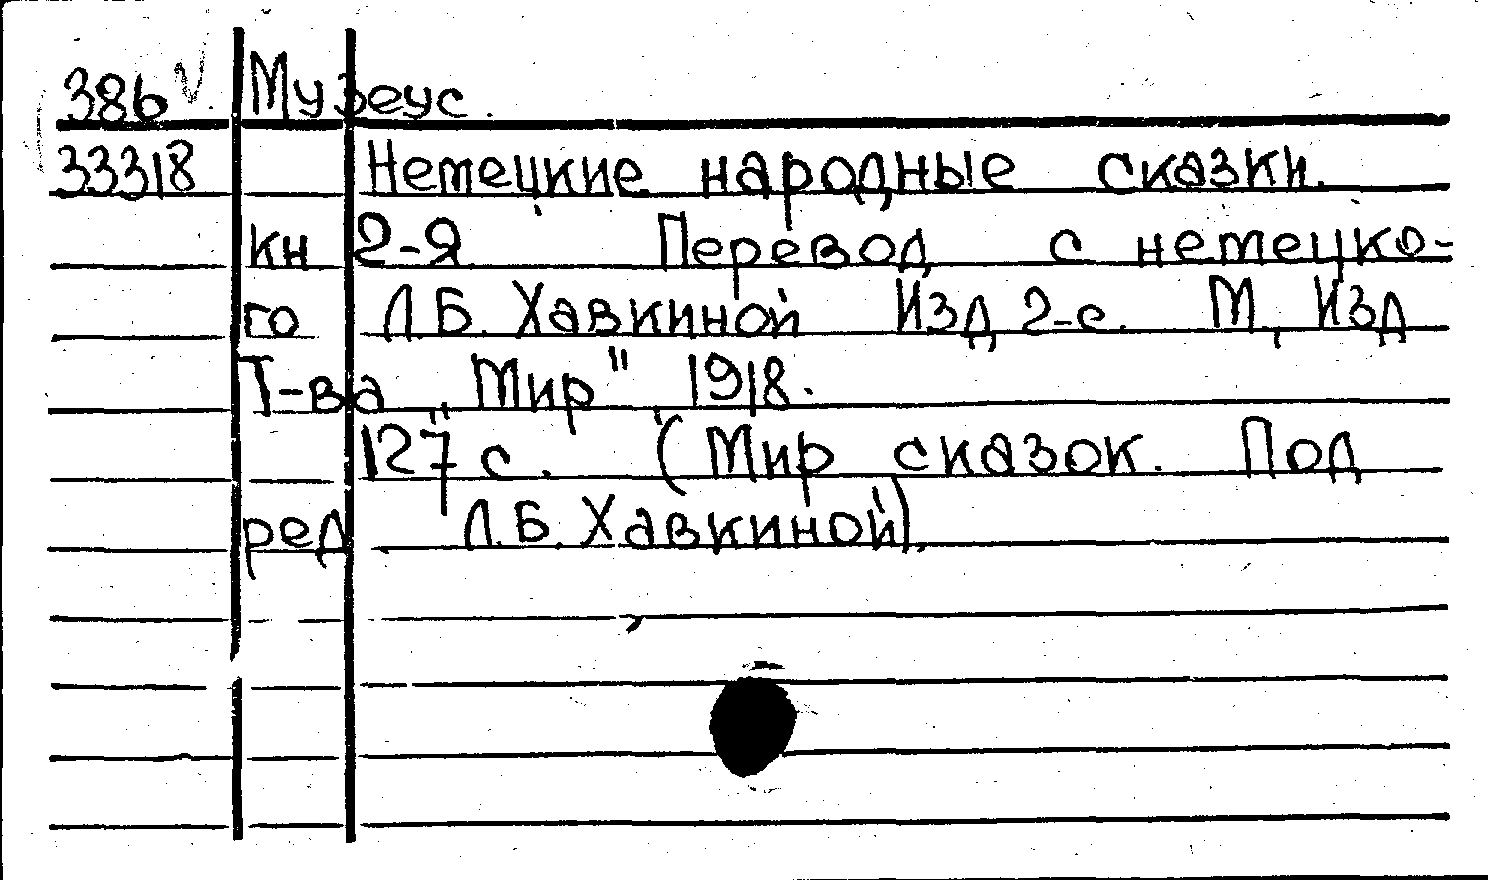 386 Музеус.
33318 Немецкие народные сказки.
кн 2-я Перевод с немецко-
го Л.Б. Хавкиной Изд 2-е. М, Изд
Т-ва „Мир", 1918.
127 с. (Мир сказок. Под
ред Л.Б. Хавкиной).